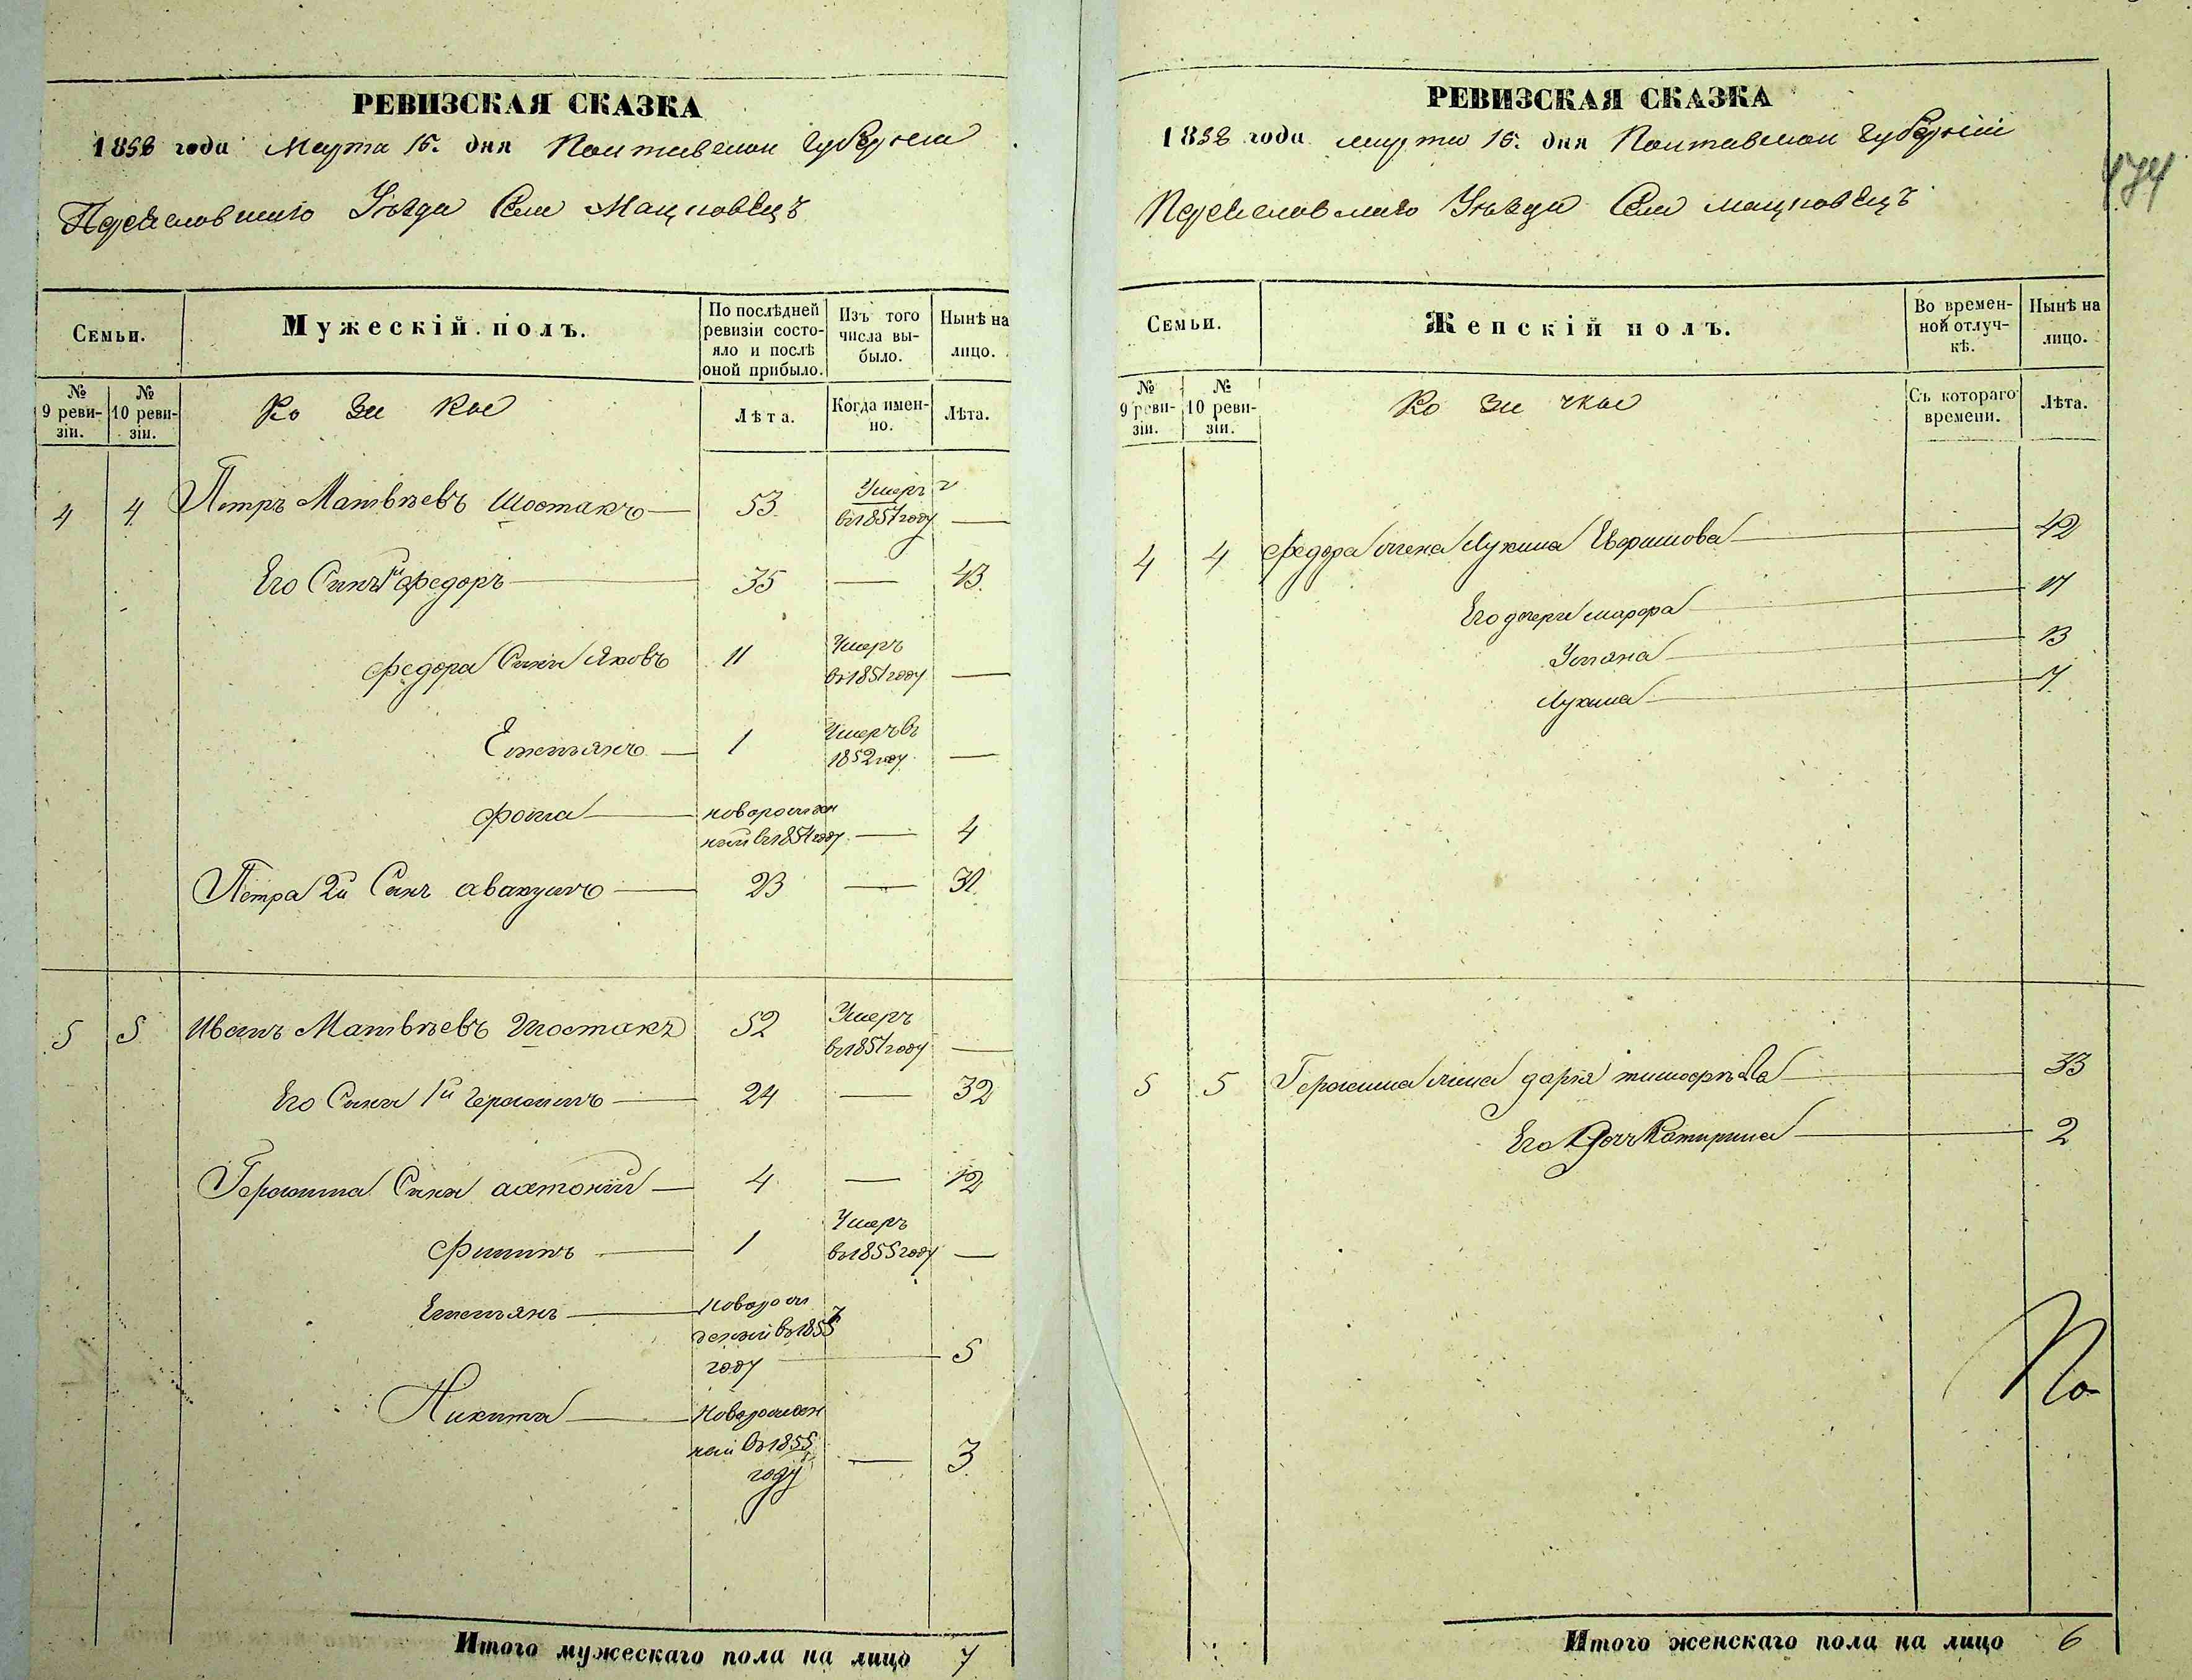 РЕВИЗСКАЯ СКАЗКА
1858 года Марта 15. дня Полтавской Губерніи
Переяславскаго Уѣзда Села Мацковецъ
Семьи.
Мужескій полъ.
По послѣдней ревизіи состояло и послѣ оной прибыло.
Изъ того числа выбыло.
Нынѣ на лицо.
№ 9 ревизіи.
№ 10 ревизіи.
Козаки
Лѣта.
Когда именно.
Лѣта.
4 4 Петръ Матвѣевъ Шостакъ 53 Умеръ
въ 1857 году
Его Сынъ 1й Федоръ 35 43.
Федора Сыны Яковъ 11 Умеръ
въ 1851 году
Емельянъ 1 Умеръ въ
1852 году
Фома новорожден
ный въ 1854 году 4
Петра 2й Сынъ авакумъ 23 31
5 5 Иванъ Матвѣевъ Шостакъ 52 Умеръ
въ 1857 году
Его Сынъ 1й Герасимъ 24 32
Герасима Сыны антоній 4 12
Филипъ 1 Умеръ
въ 1855 году
Емельянъ Новорож
денный въ 1853
году 5
Никита Новорожден
ный въ 1855
году 3
Итого мужескаго пола на лицо 7
РЕВИЗСКАЯ СКАЗКА
474
1858 года марта 15. дня Полтавской Губерніи
Переяславскаго Уѣзда Села мацковецъ
Семьи.
Женскій полъ.
Во временной отлучкѣ.
Нынѣ на лицо.
№ 9 ревизіи.
№ 10 ревизіи.
Козачкы
Съ котораго времени.
Лѣта.
4 4 Федора жена Лукина 42
Его дочери марфа 17
Уляна 13
Лукия 7
5 5 Герасима жена дарія тимофѣева 33
Его Дочь Катирина 2
Итого женскаго пола на лицо 6